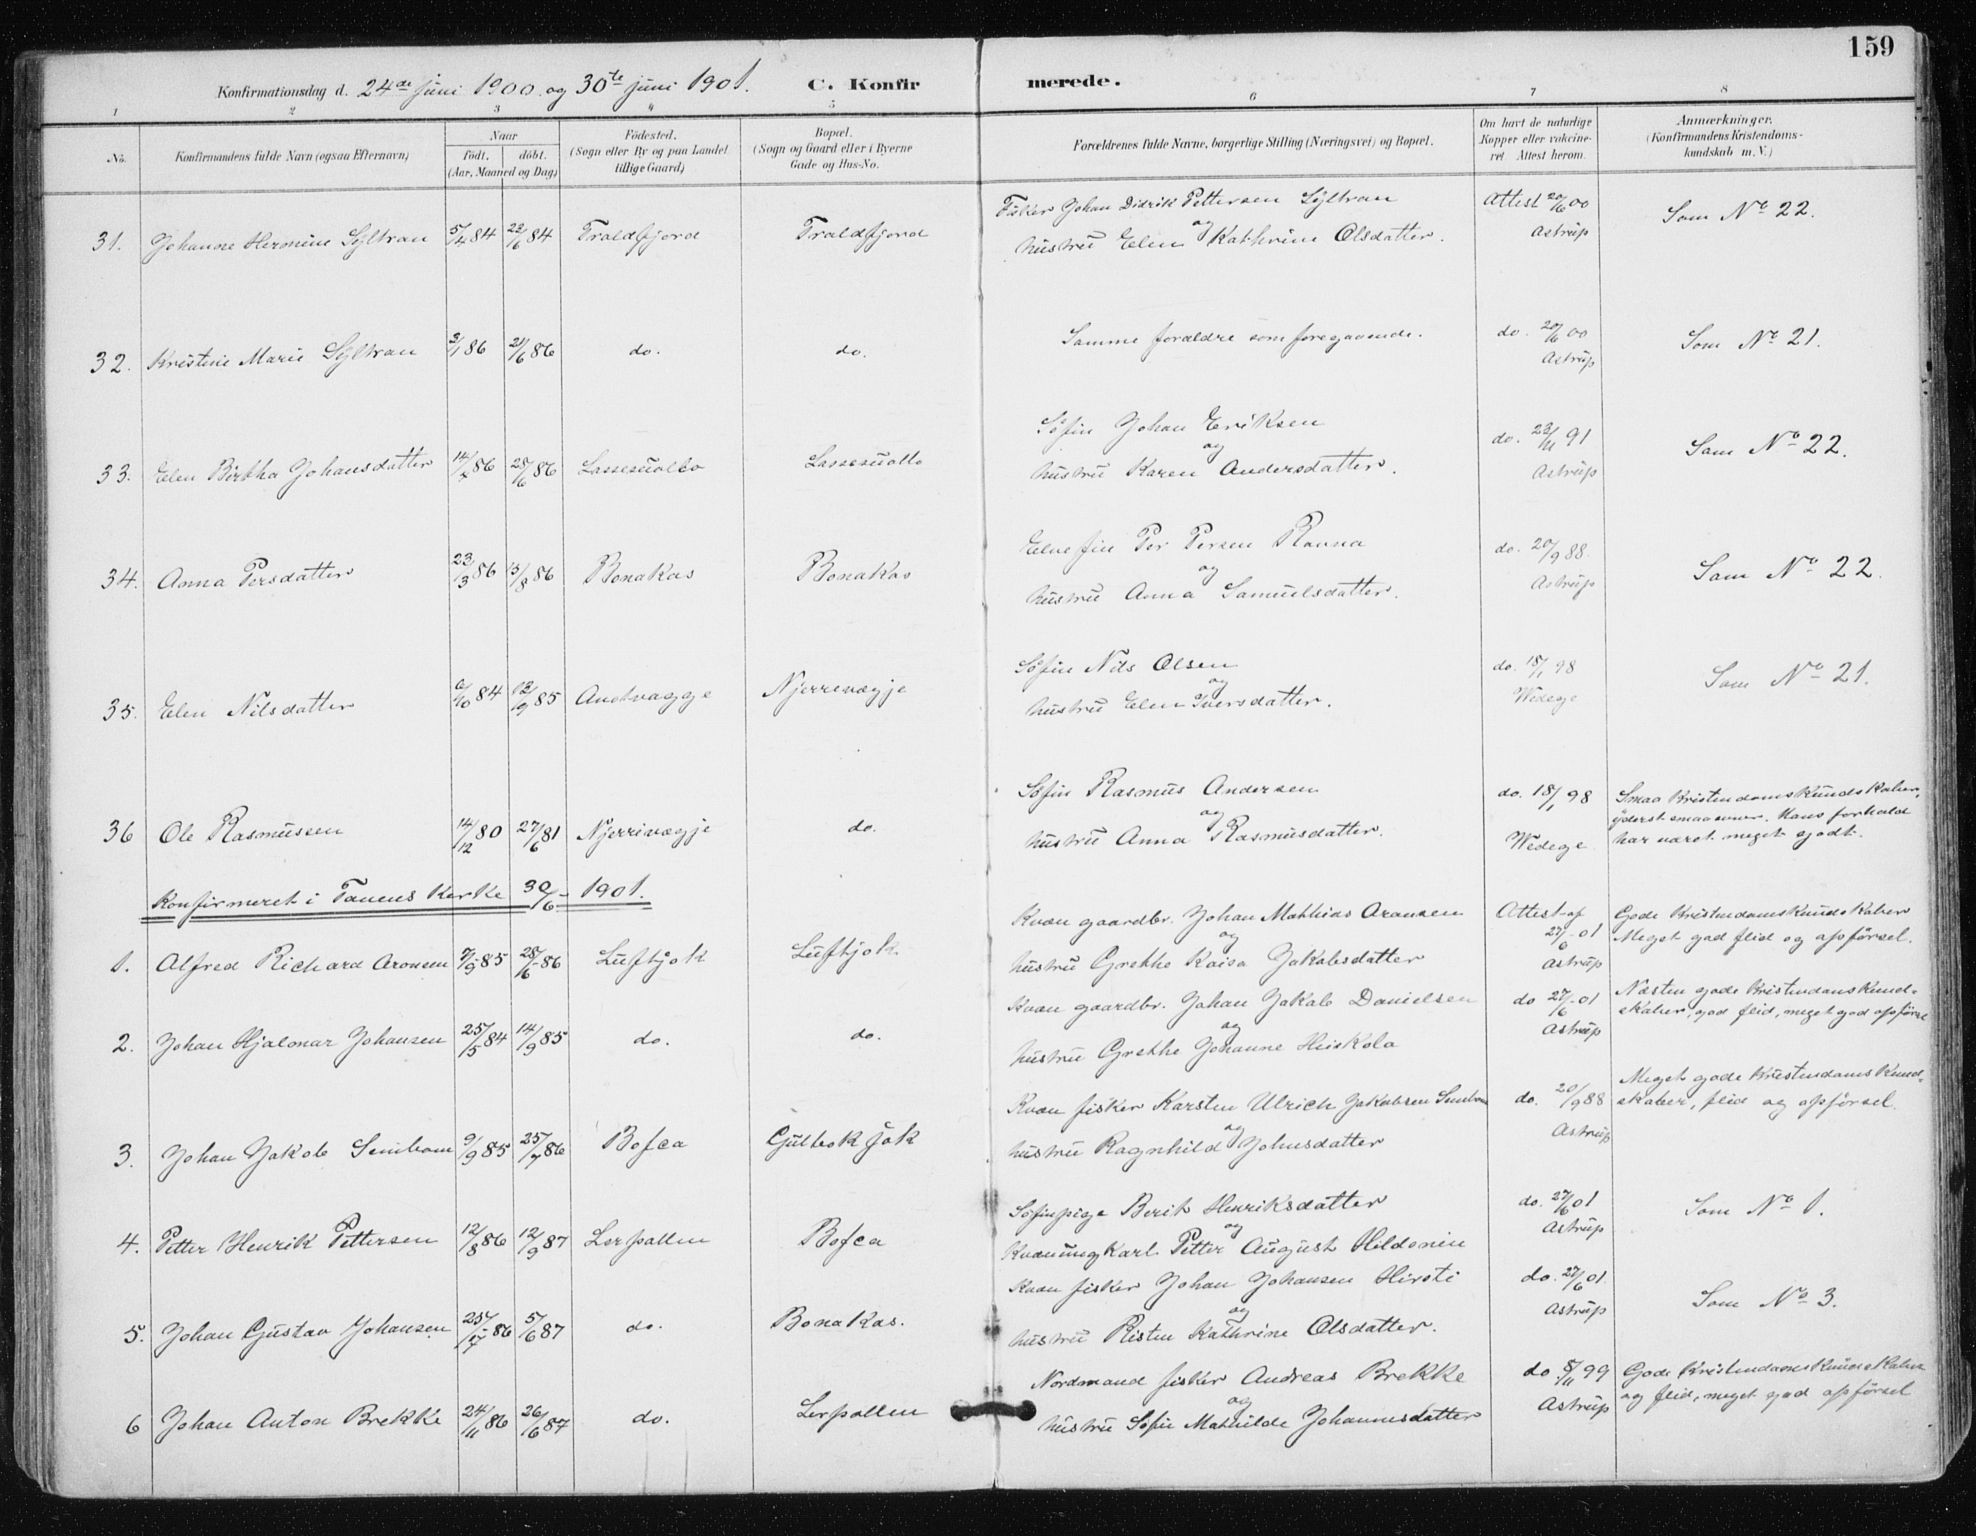 159
Konfirmationsdag d. 24de juni 1900 og 30te juni 1901. C. Konfirmerede.
1 2 3 4 5 6 7 8
No.
Konfirmandens fulde Navn (ogsaa Efternavn)
Naar
födt. döbt.
(Aar, Maaned og Dag)
Födested.
(Sogn eller By og paa Landet
tillige Gaard)
Bopæl.
(Sogn og Gaard eller i Byerne
Gade og Hus-No.
Forældrenes fulde Navne, borgerlige Stilling (Næringsvei) og Bopæl.
Om havt de naturlige
Kopper eller vakcine-
ret Attest herom.
Anmærkninger.
(Konfirmandens Kristendoms-
kundskab m. V.)
31. Johanne Hermine Syltran 5/4 84 22/6 84 Traldfjord Traldfjord
Fisker Johan Didrik Pettersen Syltran
og
hustru Elen Kathrine Olsdatter.
Attest 20/6 00
Astrup
Som No 22.
32. Kristine Marie Syltran 3/1 86 21/6 86 do. do.
Samme forældre som foregaaende.
do. 20/6 00
Astrup
Som No 21.
33. Elen Birtha Johansdatter 86 28/6 86 Lassesuolbo
Söfin Johan Eriksen
og
hustru Karen Andersdatter.
do. 23/11 91
Astrup
Som No 22.
34. Anna Persdatter 23/3 86 15/8 86 Bonakas Bonakas
Elvefin Per Persen Ravna
og
hustru Anna Samuelsdatter.
do. 20/9 88.
Astrup
Som No 22.
35. Elen Nilsdatter 84 85 Austvagge Njerrevagje
Söfin Nils Olsen
og
hustru Elen Iversdatter.
do. 18/1 98
Wedege
Som No 21.
36 Ole Rasmussen 14/12 80 27/6 81 Njerrivagje do.
Söfin Rasmus Andersen
og
hustru Anna Rasmusdatter.
do. 18/1 98
Wedege
Smaa Kristendomskundskaber,
yderst smaa evner. Hans forhold
har været meget godt.
Konfirmeret i Tanens Kirke 30/6 - 1901.
1. Alfred Richard Aronsen 7/9 85 28/6 86 Luftjok Luftjok
Kvæn gaardbr. Johan Mathias Aronsen
og
hustru Grethe Kaisa Jakobsdatter
Attest af
27/6 01
Astrup
Gode Kristendomskundskaber
Meget god flid og opförsel.
2. Johan Hjalmar Johansen 25/5 84 14/9 85 do. do.
Kvæn gaardbr. Johan Jakob Danielsen
og
hustru Grethe Johanne Heiskola
do 27/6 01
Astrup
Næsten gode Kristendomskund-
skaber, god flid, meget god opförsel
3. Johan Jakob Sembom 9/9 85 25/7 86 Bofca Gulbokjok
Kvæn fisker Karsten Ulrich Jakobsen Sembom
og
hustru Ragnhild Johnsdatter
do. 20/9 88
Astrup
Meget gode Kristendomskund-
skaber, flid og opförsel.
4. Petter Henrik Pettersen 12/8 86 12/9 87 Lerpollen Bofca
Söfinpige Berit Henriksdatter
og
Kvænungkarl Petter August Hildonen
do. 27/6 01
Astrup
Som No 1.
5. Johan Gustav Johansen 25/7 86 5/6 87 do. Bonakas.
Kvæn fisker Johan Johansen Hirsti
og
hustru Risten Kathrine Olsdatter.
do. 27/6 01
Astrup
Som No 3.
6 Johan Anton Brekke 24/11 86 26/6 87 do. Lerpollen
Nordmand fisker Andreas Brekke
og
hustru Sofie Mathilde Johannesdatter
do 8/11 99
Astrup
Gode Kristendomskundskaber
og flid, meget god opförsel